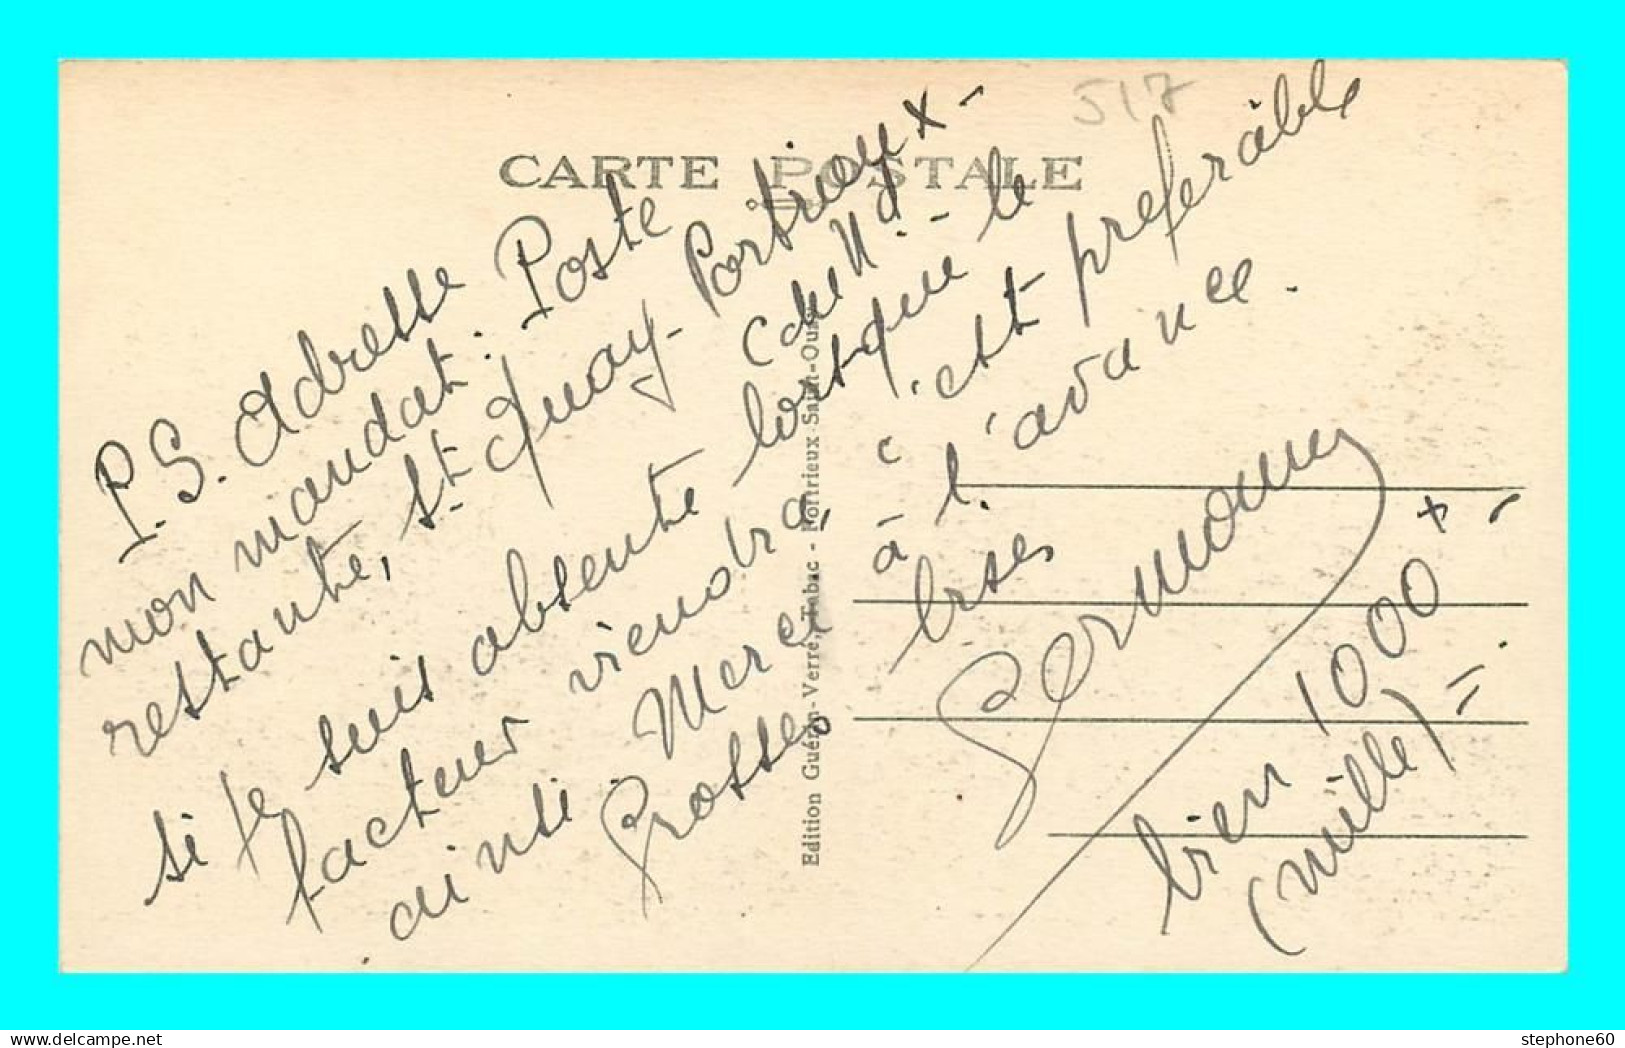 517
CARTE POSTALE
P.S. Adresse Poste
mon mandat : Poste
restante, St Quay-Portrieux -
(C. du N.) -
si je suis absente lorsque le
facteur viendra - c'est préférable
ainsi. Merci à l'avance.
Grosses bises
Germaine
bien 1000 + -
(mille) = .
Edition Guéren-Verré, Tabac - Portrieux-Saint-Quay
stephone60